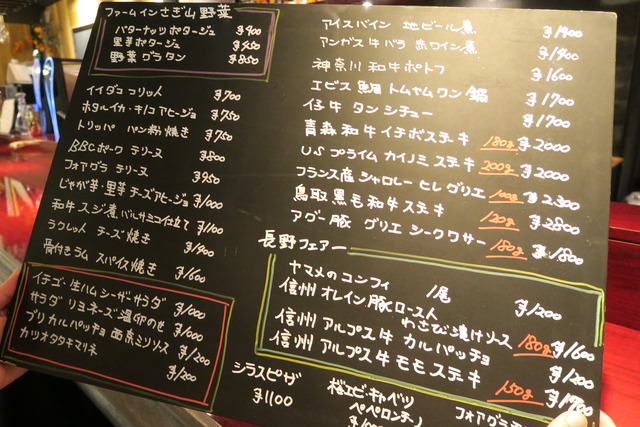 ファームインさぎ山 野菜
バターナッツポタージュ ¥400
里芋ポタージュ ¥450
野菜グラタン ¥850
イイダコ コリッん ¥700
ホタルイカ・キノコ アヒージョ ¥750
トリッパ パン粉焼き ¥750
BBCポーク テリーヌ ¥800
フォアグラ テリーヌ ¥950
じゃが芋・里芋 チーズアヒージョ ¥1000
和牛スジ煮 バルサミコ仕立て ¥1100
ラクレット チーズ焼き ¥1400
骨付きラム スパイス焼き ¥1600
イチゴ・生ハム シーザーサラダ ¥1000
サラダ リヨネーズ 温卵のせ ¥1000
ブリカルパッチョ 西京ミソソース ¥1200
カツオタタキマリネ ¥1200
アイスバイン 地ビール煮 ¥1400
アンガス牛バラ 赤ワイン煮 ¥1400
神奈川 和牛ポトフ ¥1600
エビス鯛 トムヤムクン鍋 ¥1700
仔牛 タンシチュー ¥1700
青森和牛イチボステーキ 180g ¥2000
USプライム カイノミステーキ 200g ¥2000
フランス産シャロレー ヒレ グリエ 100g ¥2300
鳥取黒毛和牛ステーキ 120g ¥2800
アグー豚 グリエ シークワサー 180g ¥1800
長野フェアー
ヤマメのコンフィ 1尾 ¥1200
信州オレイン豚ロースト わさび漬けソース 180g ¥1600
信州 アルプス牛 カルパッチョ ¥1200
信州 アルプス牛 モモステーキ 150g ¥1700
シラスピザ ¥1100
桜エビキャベツ
ペペロンチーノ
フォアグラ